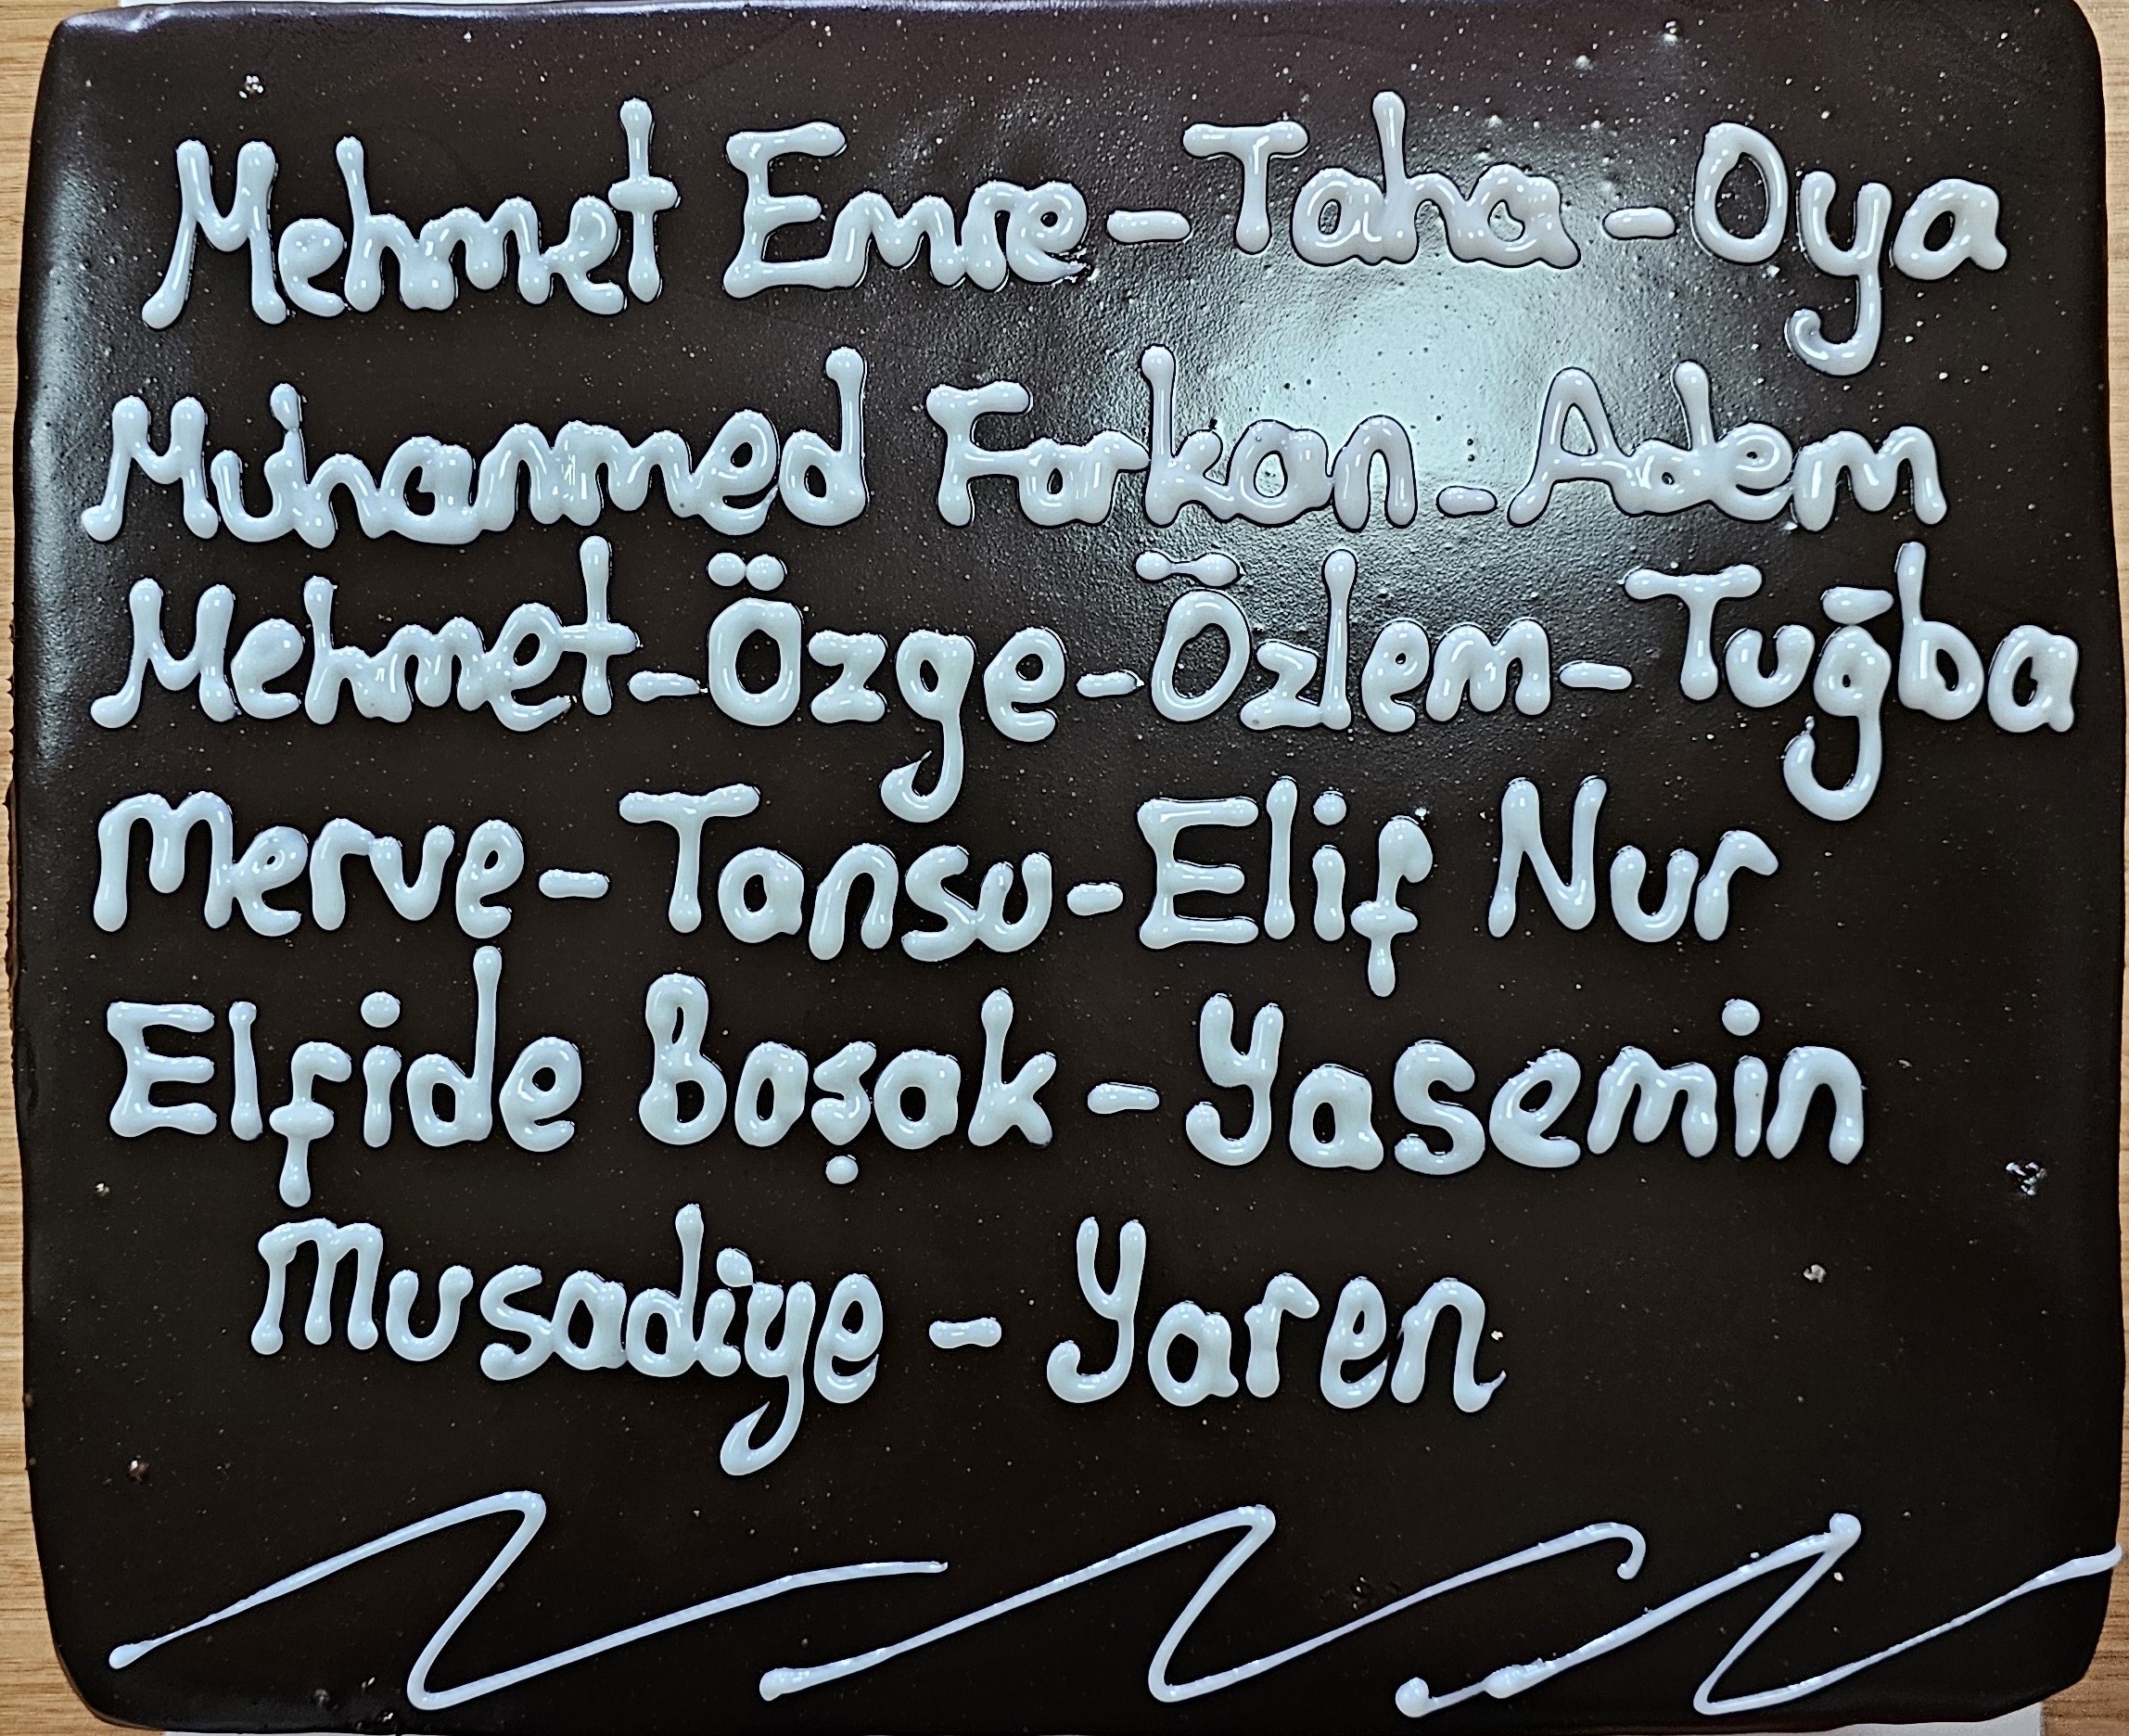 Mehmet Emre - Taha - Oya
Muhammed Forkan - Adem
Mehmet - Özge - Özlem - Tuğba
Merve - Tansu - Elif Nur
Elfide Başak - Yasemin
Musadiye - Yaren